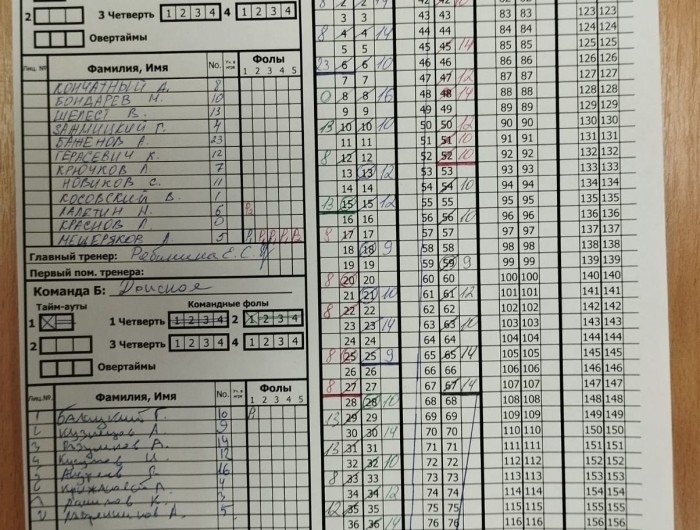 2 3 Четверть 1 2 3 4 4 1 2 3 4
Овертаймы
Фамилия, Имя No. Фолы
1 2 3 4 5
КОНЧАТНЫЙ А. 8
БОНДАРЕВ Н. 10
ШЕЛЕСТ В. 13
ЗАЖМИЦКИЙ Г. 4
БАЖЕНОВ А. 23
ГЕРАСЕВИЧ К. 12
КРЮЧКОВ А. 7
НОВИКОВ С. 11
КОСОВСКИЙ В. 1
ЛАПЕТИН Н. 6
КРАСНОВ Л. 0
МЕЩЕРЯКОВ Л. 5
Главный тренер: Е.С.
Первый пом. тренера:
Команда Б: Донское
Тайм-ауты Командные фолы
1 1 Четверть 1 2 3 4 2 1 2 3 4
2 3 Четверть 1 2 3 4 4 1 2 3 4
Овертаймы
Фамилия, Имя No. Фолы
1 2 3 4 5
1 Г. 10
2 Кузнецов Л. 9
3 А. 14
4 И. 12
5 Андреев 16
6 4
Данилов К. 3
А. 5
3 3 43 43 83 83 123 123
4 4 44 44 84 84 124 124
5 5 45 45 14 85 85 125 125
23 6 6 10 46 46 86 86 126 126
7 7 47 47 12 87 87 127 127
0 8 8 16 48 48 14 88 88 128 128
9 9 49 49 89 89 129 129
13 10 10 10 50 50 12 90 90 130 130
11 11 51 51 10 91 91 131 131
8 12 12 52 52 10 92 92 132 132
13 13 12 53 53 93 93 133 133
14 14 54 54 10 94 94 134 134
13 15 15 12 55 55 95 95 135 135
16 16 56 56 10 96 96 136 136
8 17 17 57 57 97 97 137 137
18 18 9 58 58 98 98 138 138
19 19 59 59 9 99 99 139 139
8 20 20 60 60 100 100 140 140
21 21 10 61 61 12 101 101 141 141
8 22 22 62 62 102 102 142 142
23 23 14 63 63 10 103 103 143 143
24 24 64 64 104 104 144 144
8 25 25 9 65 65 14 105 105 145 145
26 26 66 66 106 106 146 146
8 27 27 67 67 14 107 107 147 147
28 28 10 68 68 108 108 148 148
13 29 29 69 69 109 109 149 149
30 30 14 70 70 110 110 150 150
13 31 31 71 71 111 111 151 151
32 32 10 72 72 112 112 152 152
8 33 33 73 73 113 113 153 153
34 34 12 74 74 114 114 154 154
12 35 35 75 75 115 115 155 155
36 36 14 76 76 116 116 156 156